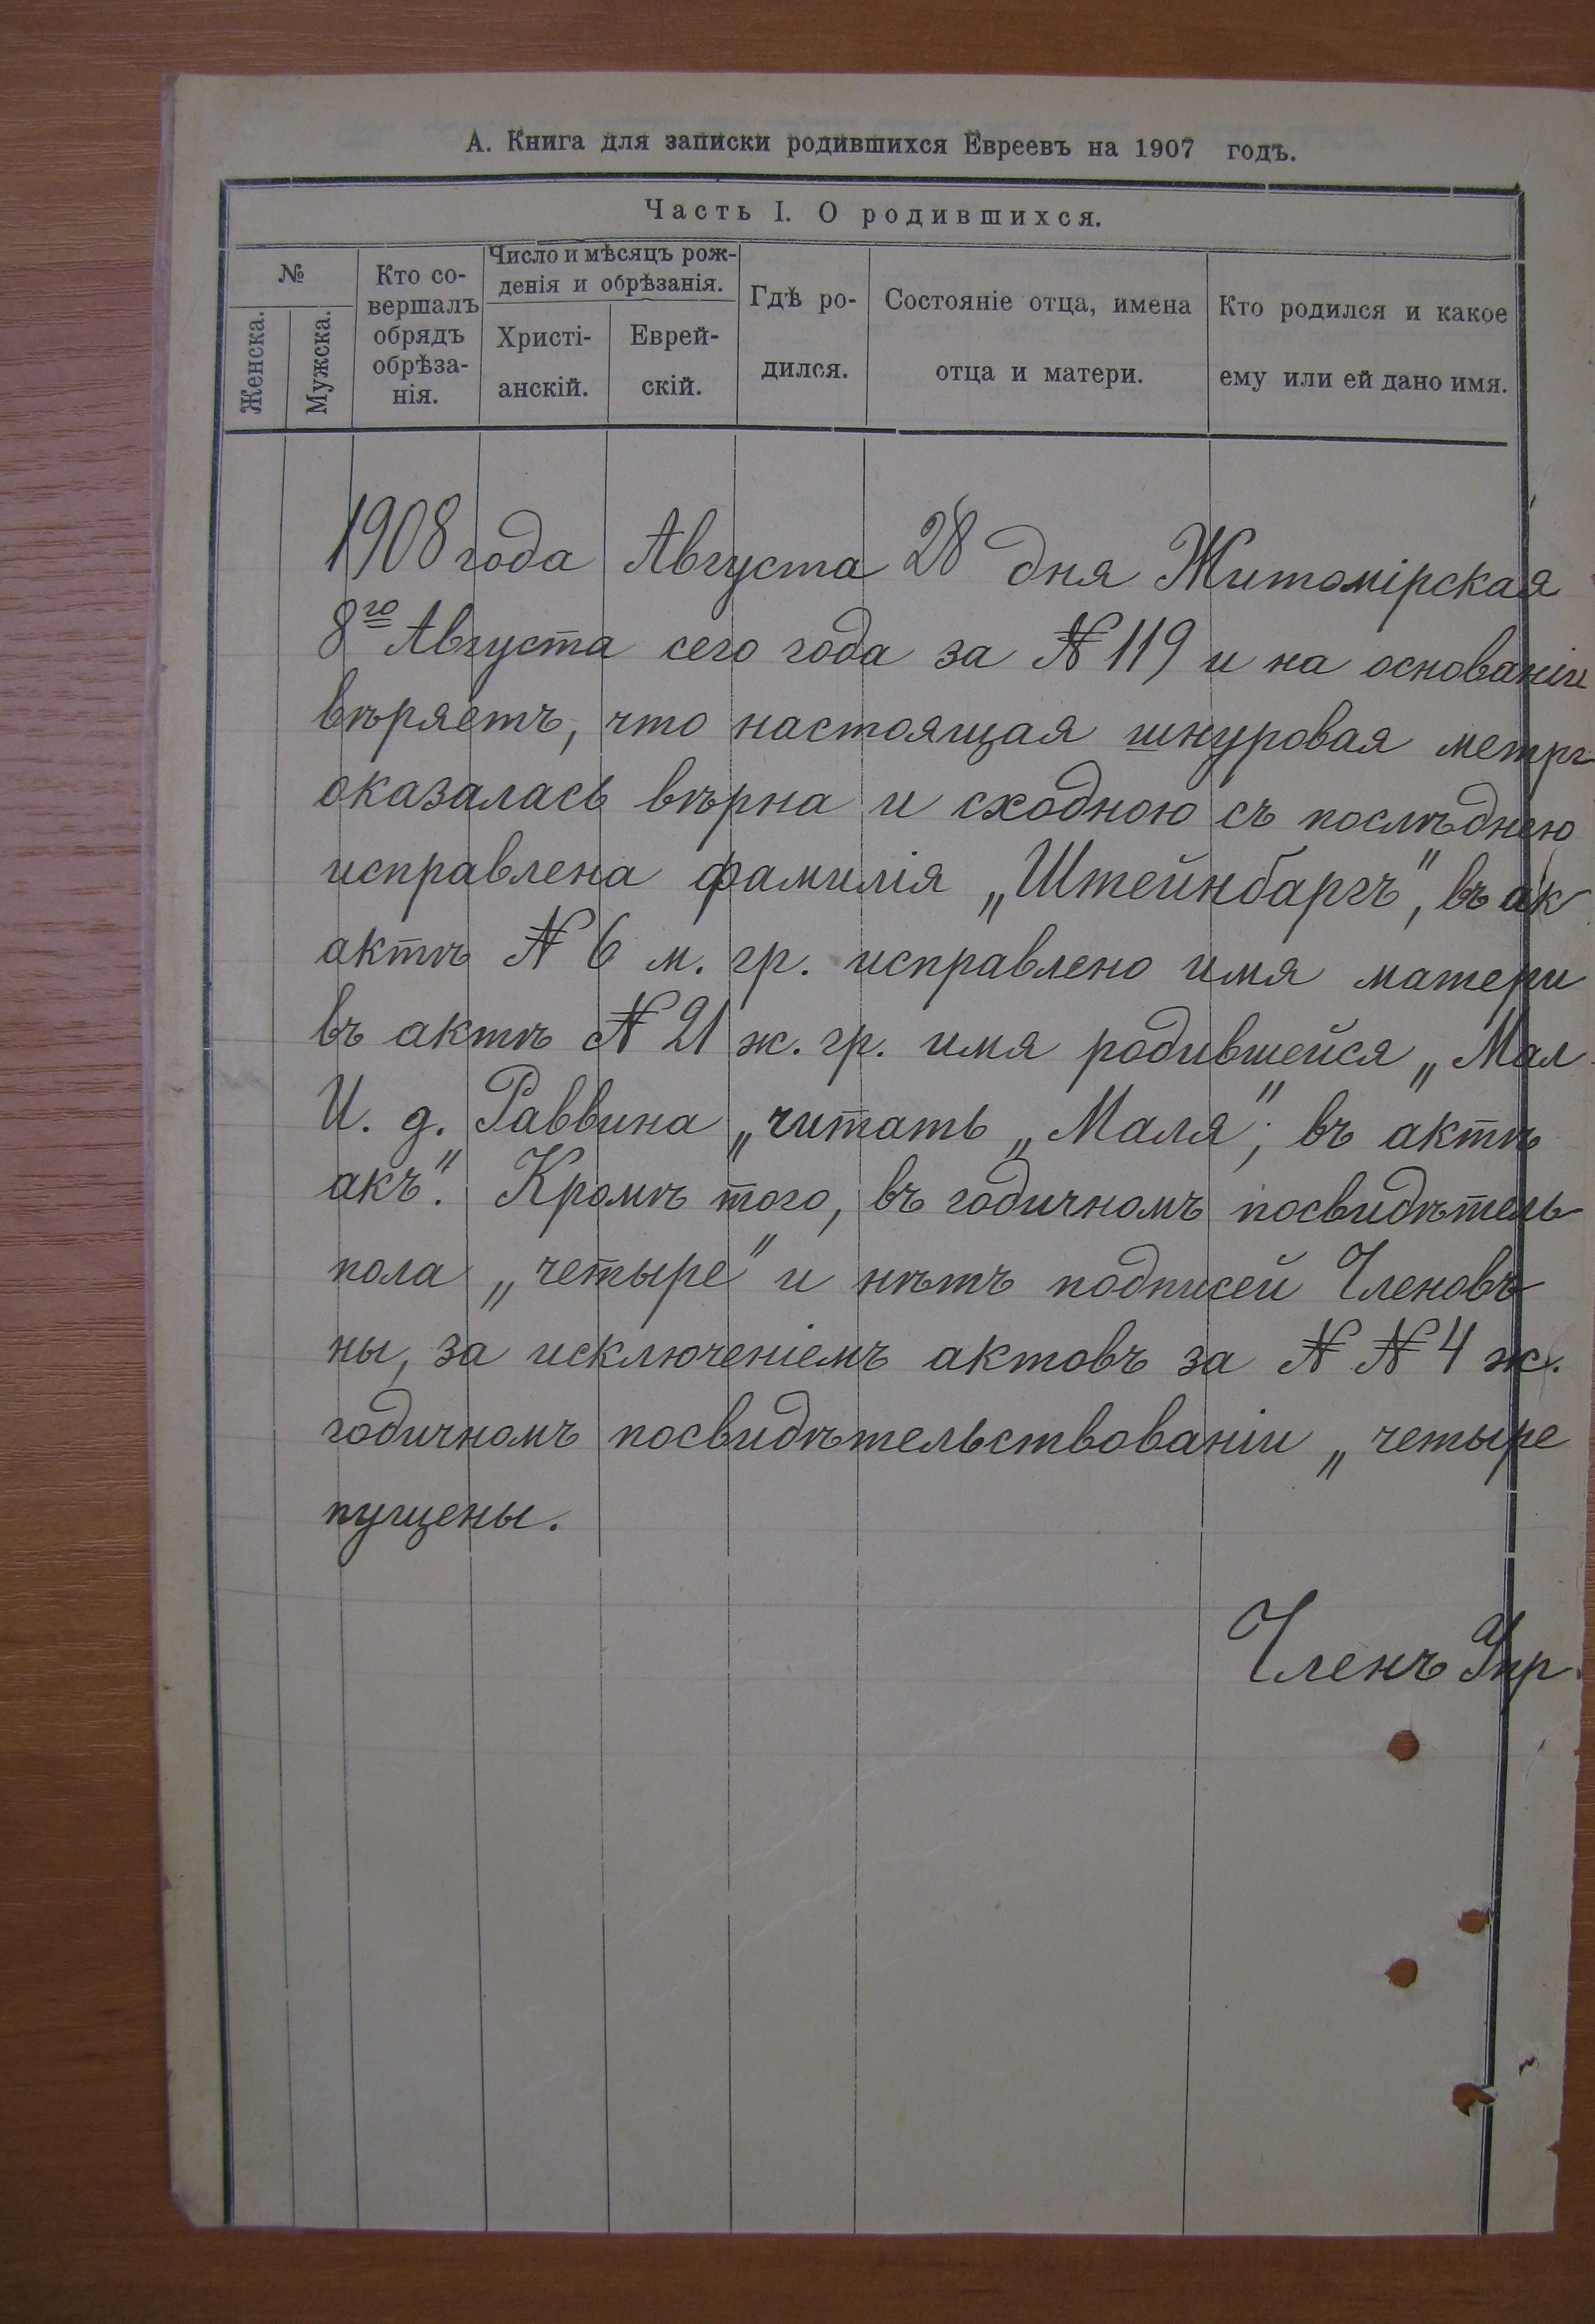 А. Книга для записки родившихся Евреевъ на 1907 годъ.
Часть I. О родившихся.
№
Женска.
Мужска.
Кто со-
вершалъ
обрядъ
обрѣза-
нія.
Число и мѣсяцъ рож-
денія и обрѣзанія.
Христі-
анскій.
Еврей-
скій.
Гдѣ ро-
дился.
Состояніе отца, имена
отца и матери.
Кто родился и какое
ему или ей дано имя.
1908 года Августа 28 дня Житомірская
8го Августа сего года за № 119 и на основаніи
вѣряетъ, что настоящая шнуровая метри
оказалась вѣрна и сходною съ послѣднею
исправлена фамилія „Штейнбаргъ“, въ ак
актѣ № 6 м. гр. исправлено имя матери
въ актѣ № 21 ж. гр. имя родившейся „Мал
И. д. Раввина „читать „Маля“; въ актѣ
акъ“. Кромѣ того, въ годичномъ посвидѣтель
пола „четыре“ и нѣтъ подписей Членовъ
ны, за исключеніемъ актовъ за № № 4 ж.
годичномъ посвидѣтельствованіи „четыре
пущены.
Членъ Упр